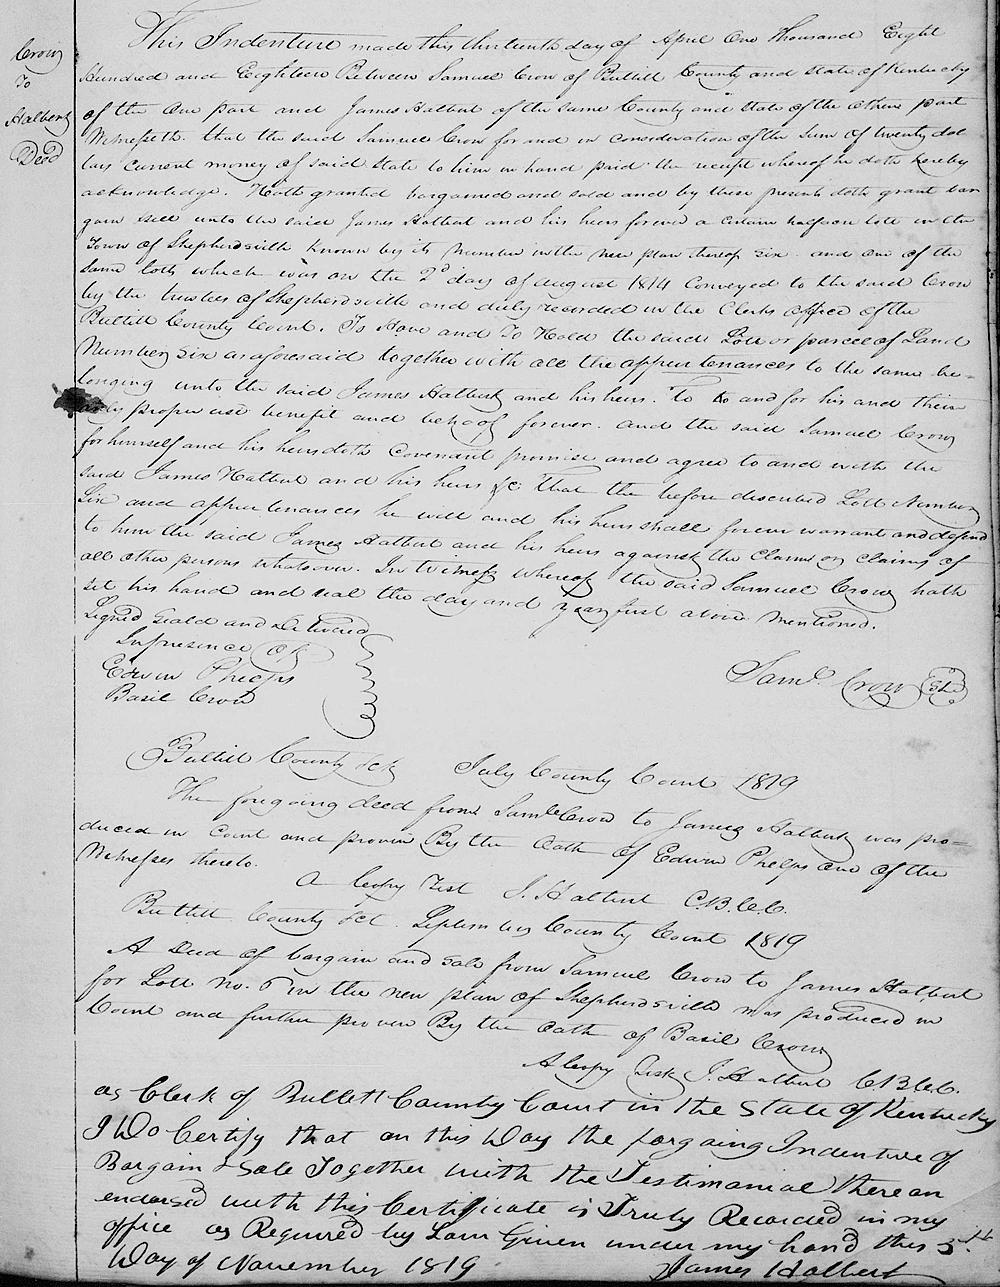 Crow
To
Halbert
Deed
This Indenture made this thirteenth day of April One Thousand Eight
Hundred and Eeighteen Between Samuel Crow of Bullitt County and state of Kentucky
of the One part and James Halbert of the same County and State of the othere part
Witnesseth that the said Samuel Crow for and in consideration of the sum of twenty dol
lars Current money of said State to him in hand paid the receipt whereof he doth hereby
acknowledge. Hath granted bargained and sold and by these presents doth grant bar
gain sell unto the said James Halbert and his heirs forever a certain half on lott in the
Town of Shepherdsville known by its number in the new plan thereof six and one of the
same lots which was on the 2d day of august 1814 Conveyed to the said Crow
by the trustees of Shepherdsville and duly recorded in the Clerks office of the
Bullitt County Court. To Have and To Hold the said Lott or parcel of Land
Number Six as aforesaid together with all the appurtenances to the same be=
longing unto the said James Halbert and his heirs. To to and for his and their
only proper use benefit and behoof forever. and the said Samuel Crow
for himself and his heirs doth Covenant promise and agree to and with the
said James Halbert and his heirs &c that the before described Lott Number
Six and appurtenances he will and his heirs shall forever warrant and defend
to him the said James Halbert and his heirs against the Claim or Claims of
all other persons whatsoever. In witness whereof the said Samuel Crow hath
set his hand and seal the day and year first above mentioned.
Signed Seald and Delivered
In presence of
Edwin Phelps
Basil Crow
Saml Crow Sl
Bullitt County Sct July County Court 1819
The foregoing deed from Saml Crow to James Halbert was pro=
duced in Court and proven By the Oath of Edwin Phelps one of the
Witnesses thereto.
A Copy Test J. Halbert C.B.C.C.
Bullitt County Sct. September County Court 1819
A Deed of bargain and Sale from Samuel Crow to James Halbert
for Lott No. 6 in the new plan of Shepherdsville was produced in
Court and further proven By the Oath of Basil Crow
A Copy Test J. Halbert C.B.C.C.
as Clerk of Bullett County Court in the State of Kentucky
I Do Certify that on this Day the forgoing Indenture of
Bargain & Sale Together with the Testimonial thereon
endorsd with this Certificate is Truly Recorded in my
office as Required by Law Given under my hand this 5th
Day of November 1819
James Halbert